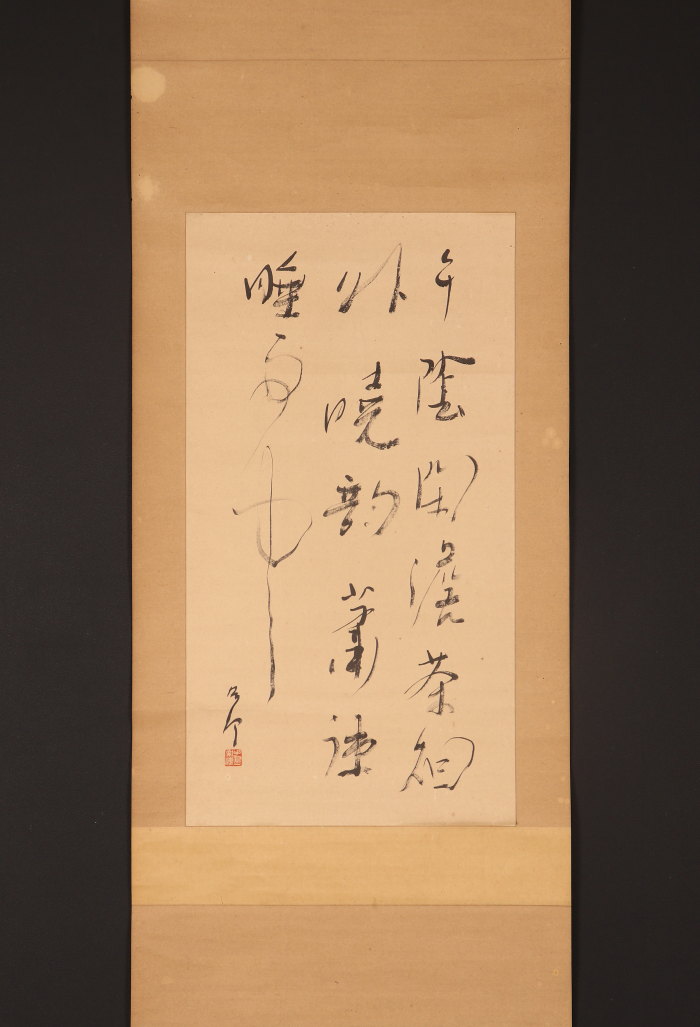 午陰閑澹茶烟
外曉韵蕭疎
睡雨中